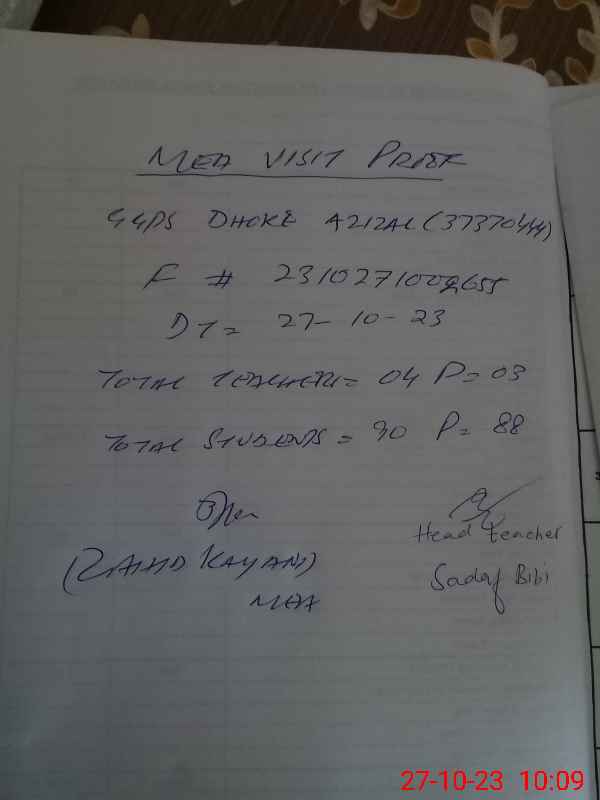 MEA VISIT PROOF
GGPS DHOKE AZIZAL (37370444)
F # 2310271009655
DT = 27-10-23
TOTAL TEACHERS = 04 P = 03
TOTAL STUDENTS = 90 P = 88
Head teacher
(ZAHID KAYANI)
Sadaf Bibi
MEA
27-10-23 10:09